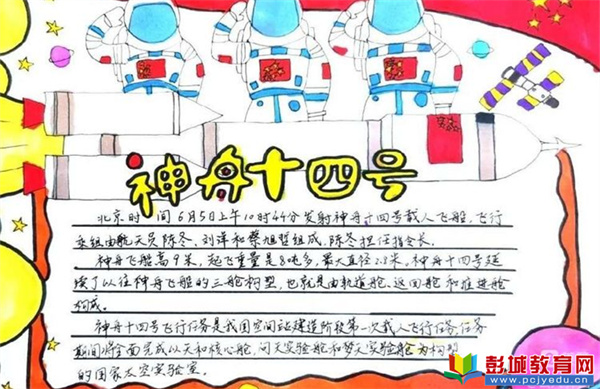 神舟十四号
北京时间6月5日上午10时44分发射神舟十四号载人飞船,飞行
乘组由航天员陈冬、刘洋和蔡旭哲组成,陈冬担任指令长。
神舟飞船高9米,起飞重量是8吨多,最大直径2.8米。神舟十四号延
续了以往神舟飞船的三舱构型,也就是由轨道舱、返回舱和推进舱
构成。
神舟十四号飞行任务是我国空间站建造阶段第一次载人飞行任务,任务
期间将全面完成以天和核心舱、问天实验舱和梦天实验舱为构型
的国家太空实验室。
彭城教育网
www.pcjyedu.cn